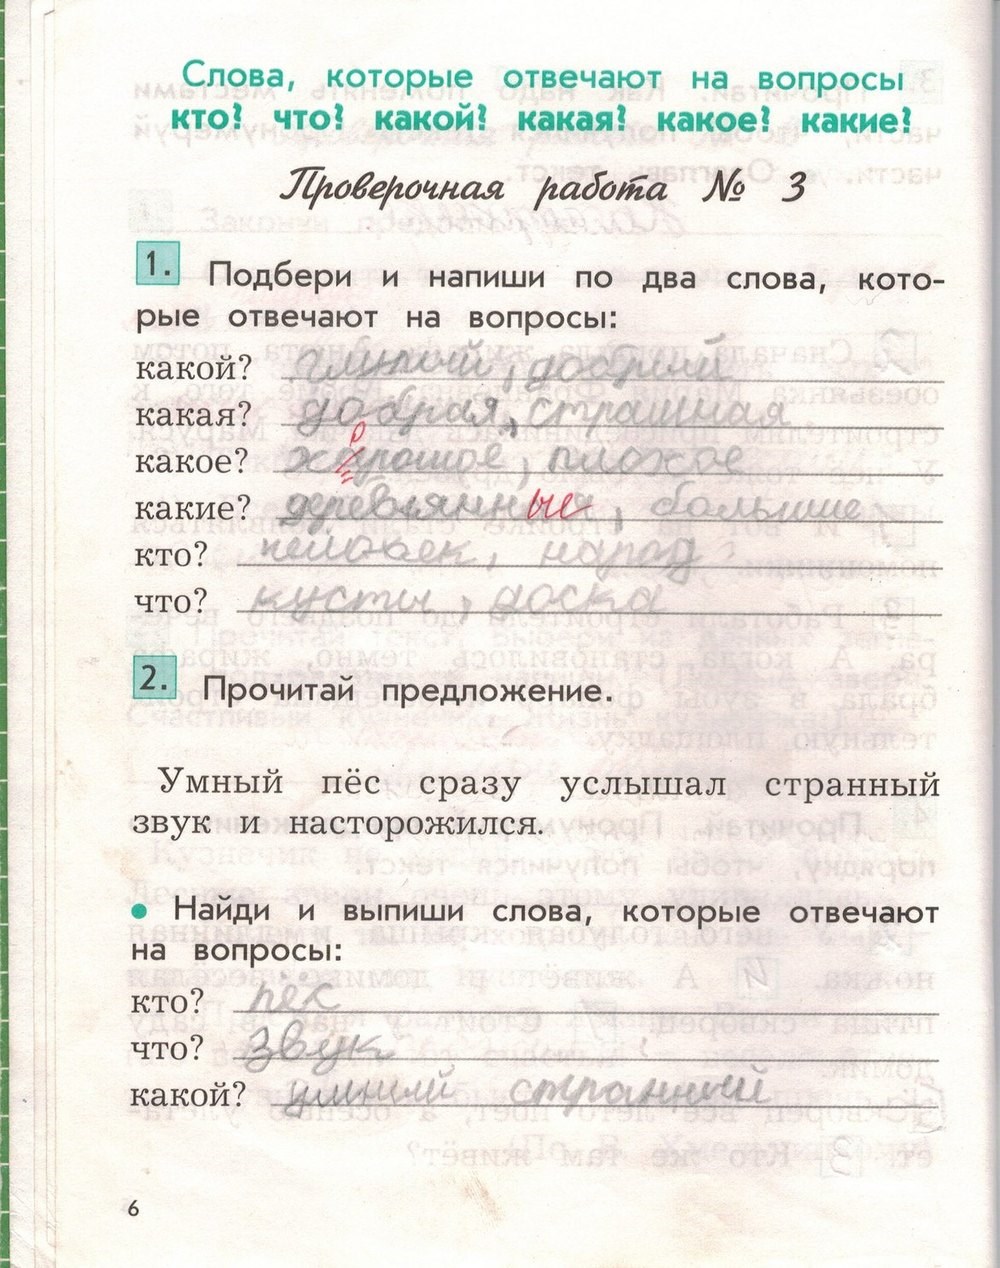 Слова, которые отвечают на вопросы
кто? что? какой? какая? какое? какие?
Проверочная работа № 3
1. Подбери и напиши по два слова, кото-
рые отвечают на вопросы:
какой? умный, добрый
какая? добрая, страшная
р
какое? хорошое, плохое
какие? деревянные, большие
кто? человек, народ
что? кусты, доска
2. Прочитай предложение.
Умный пёс сразу услышал странный
звук и насторожился.
• Найди и выпиши слова, которые отвечают
на вопросы:
кто? пёс
что? звук
какой? умный странный
6